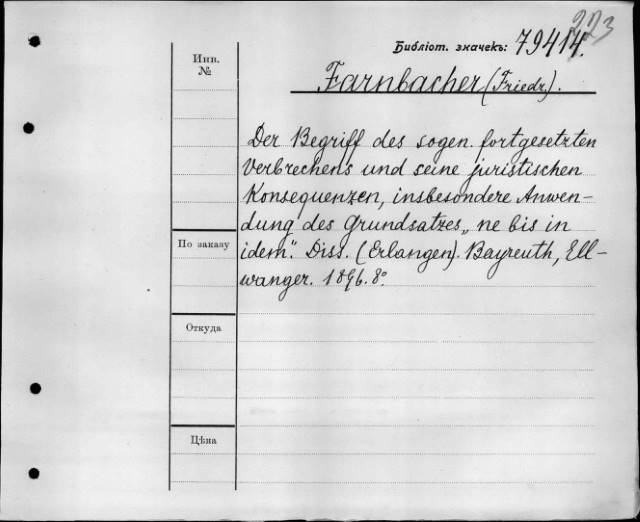 223
Библіот. значекъ: 79414.
Инв.
№
Farnbacher (Friedr.).
Der Begriff des sogen. fortgesetzten
Verbrechens und seine juristischen
Konsequenzen, insbesondere Anwen-
dung des Grundsatzes „ne bis in
idem“. Diss. (Erlangen). Bayreuth, Ell-
wanger. 1896. 8°.
По заказу
Откуда
Цѣна